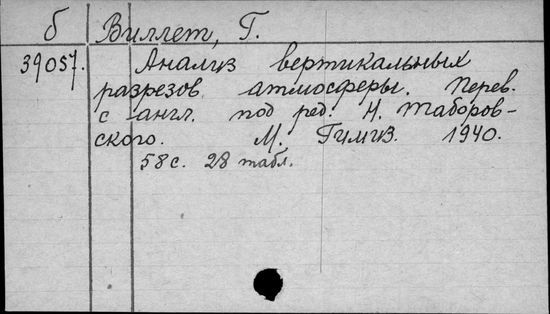 б Виллет, Г.
39057. Анализ вертикальных
разрезов атмосферы. Перев.
с англ. под ред. Н. Таборов-
ского. М. Гимиз. 1940.
58 с. 28 табл.